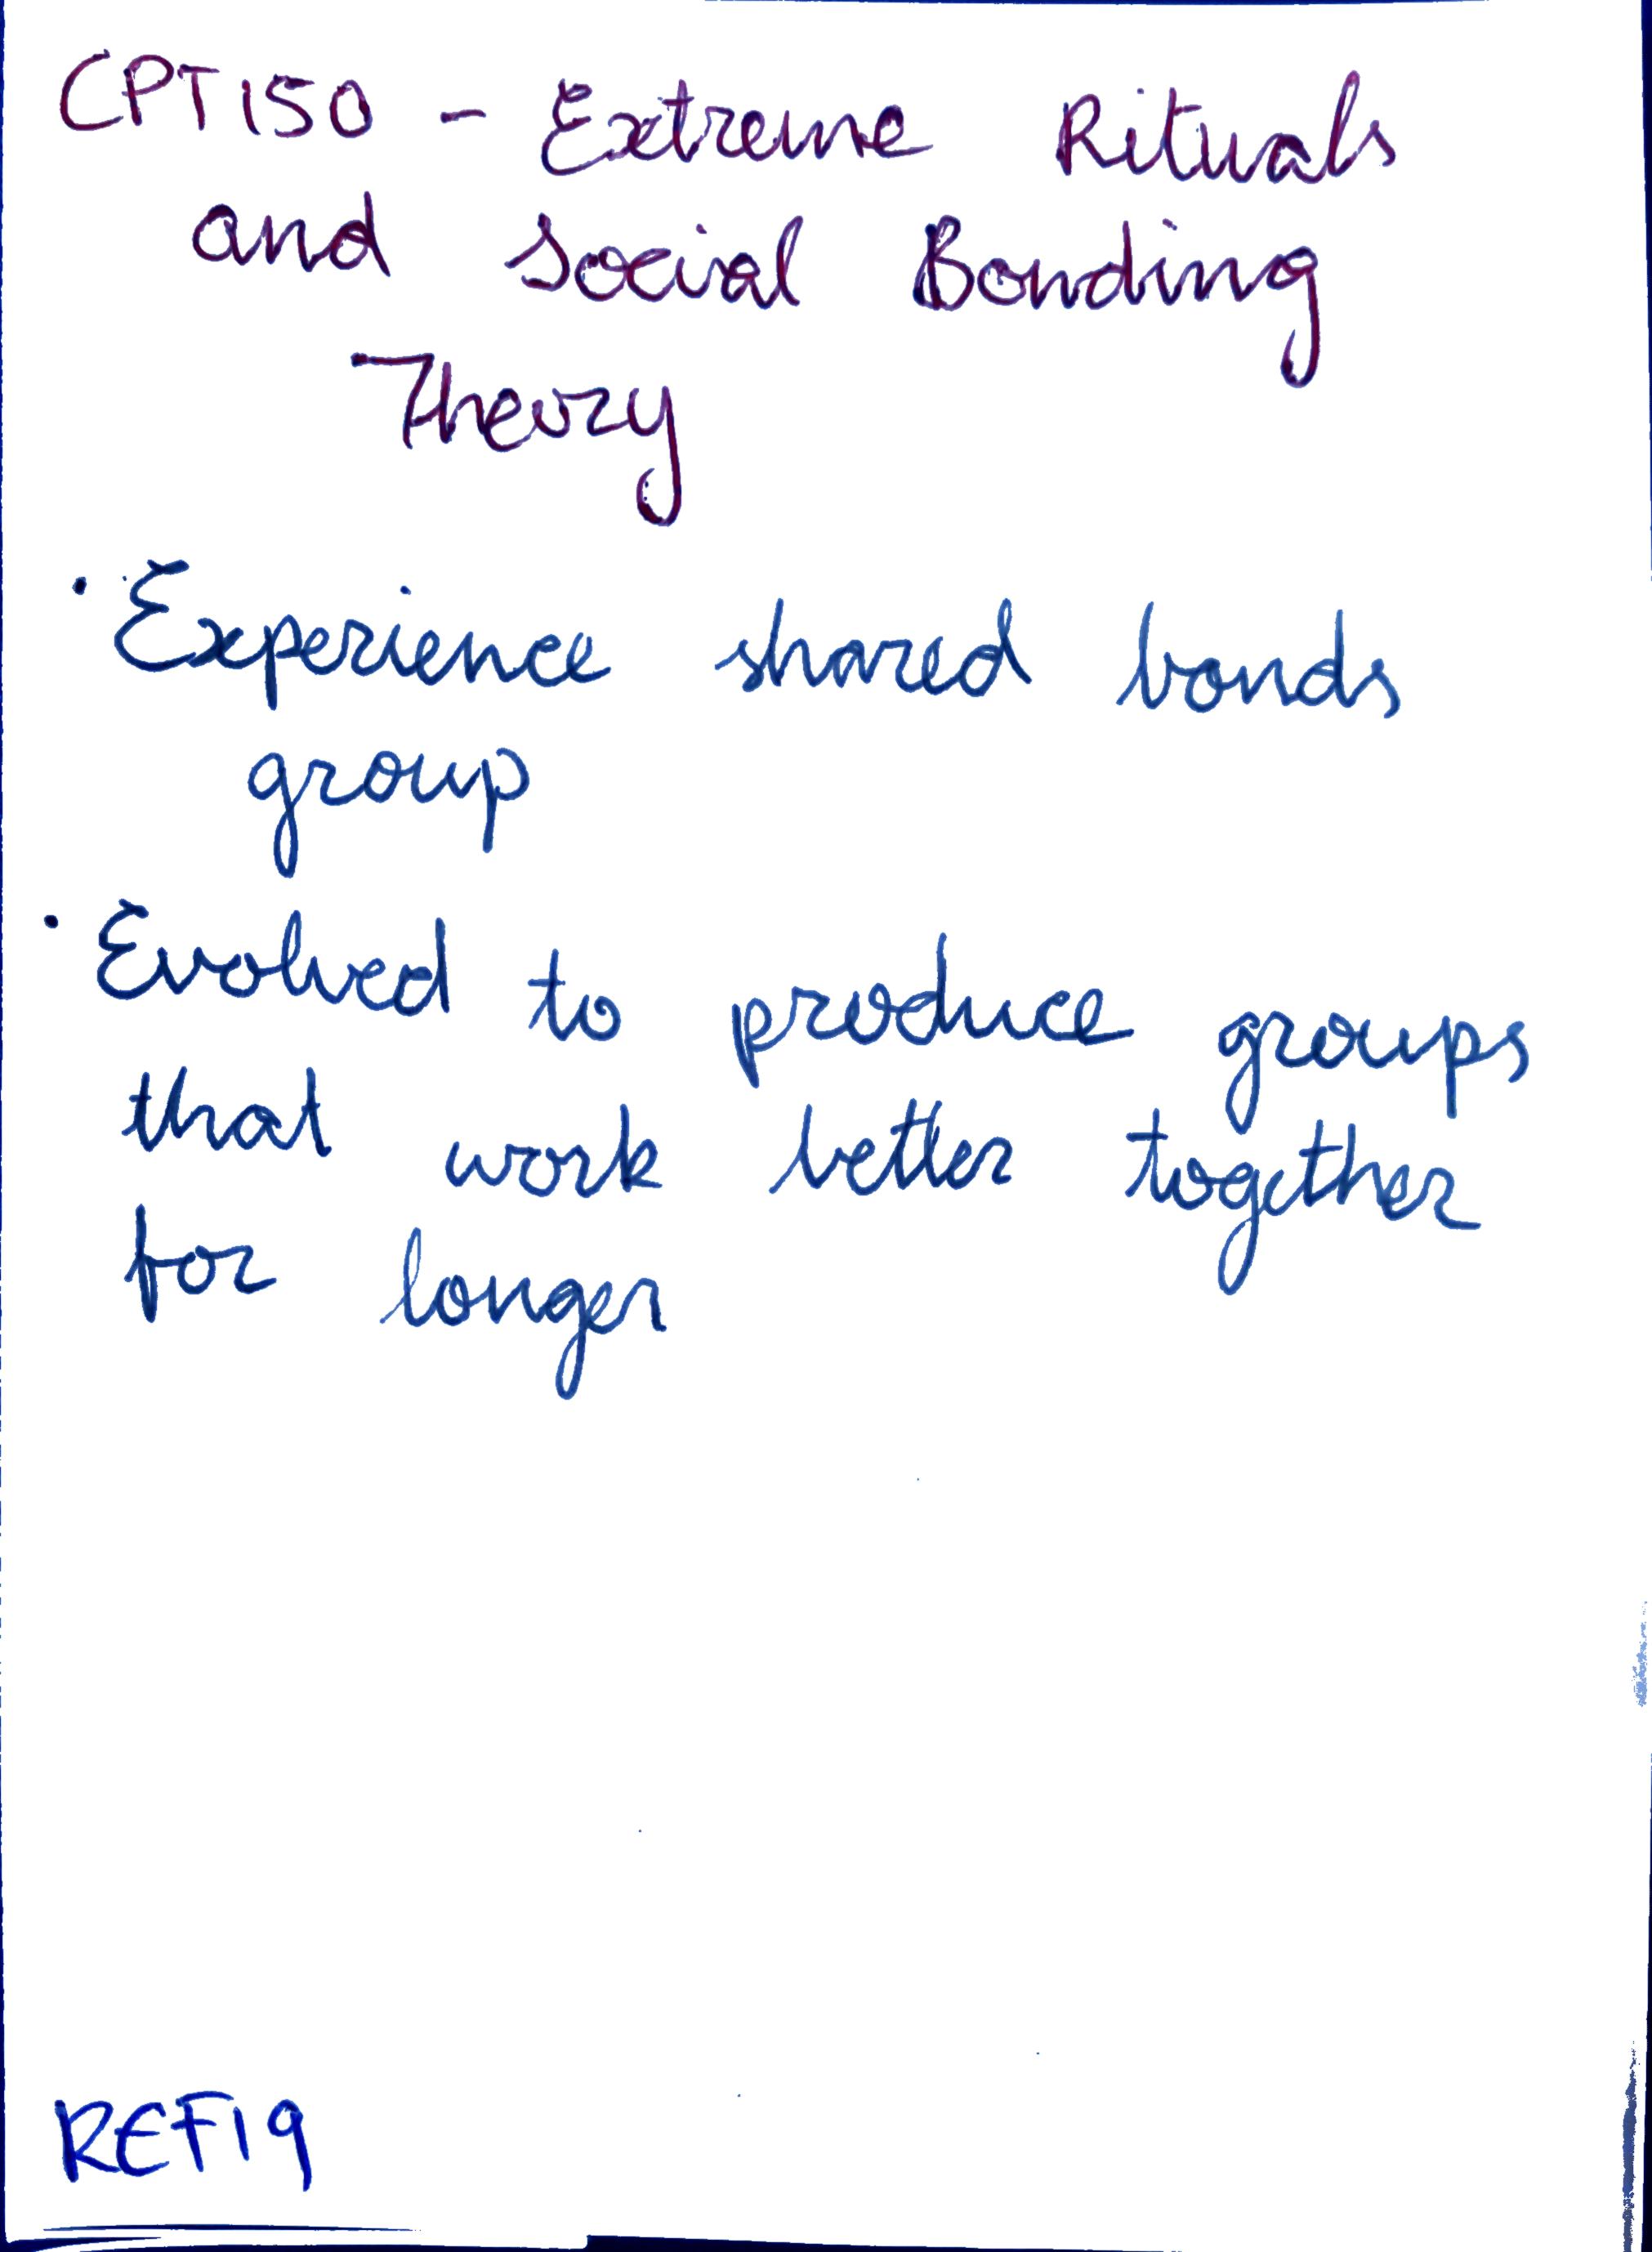 CPT150 - Extreme Rituals
and Social Bonding
Theory
· Experience shared bonds
group
· Evolved to produce groups
that work better together
for longer
REF19